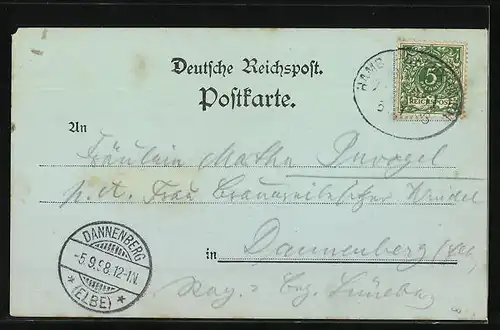 Deutsche Reichspost.
Postkarte.
5
REICHSPOST
HAMB
An
Fräulein Martha
p. A. Frau Brauereibesitzer
in Dannenberg (Elbe)
Bez. Lüneburg
DANNENBERG
-5.9.98.12-1N.
* (ELBE) *